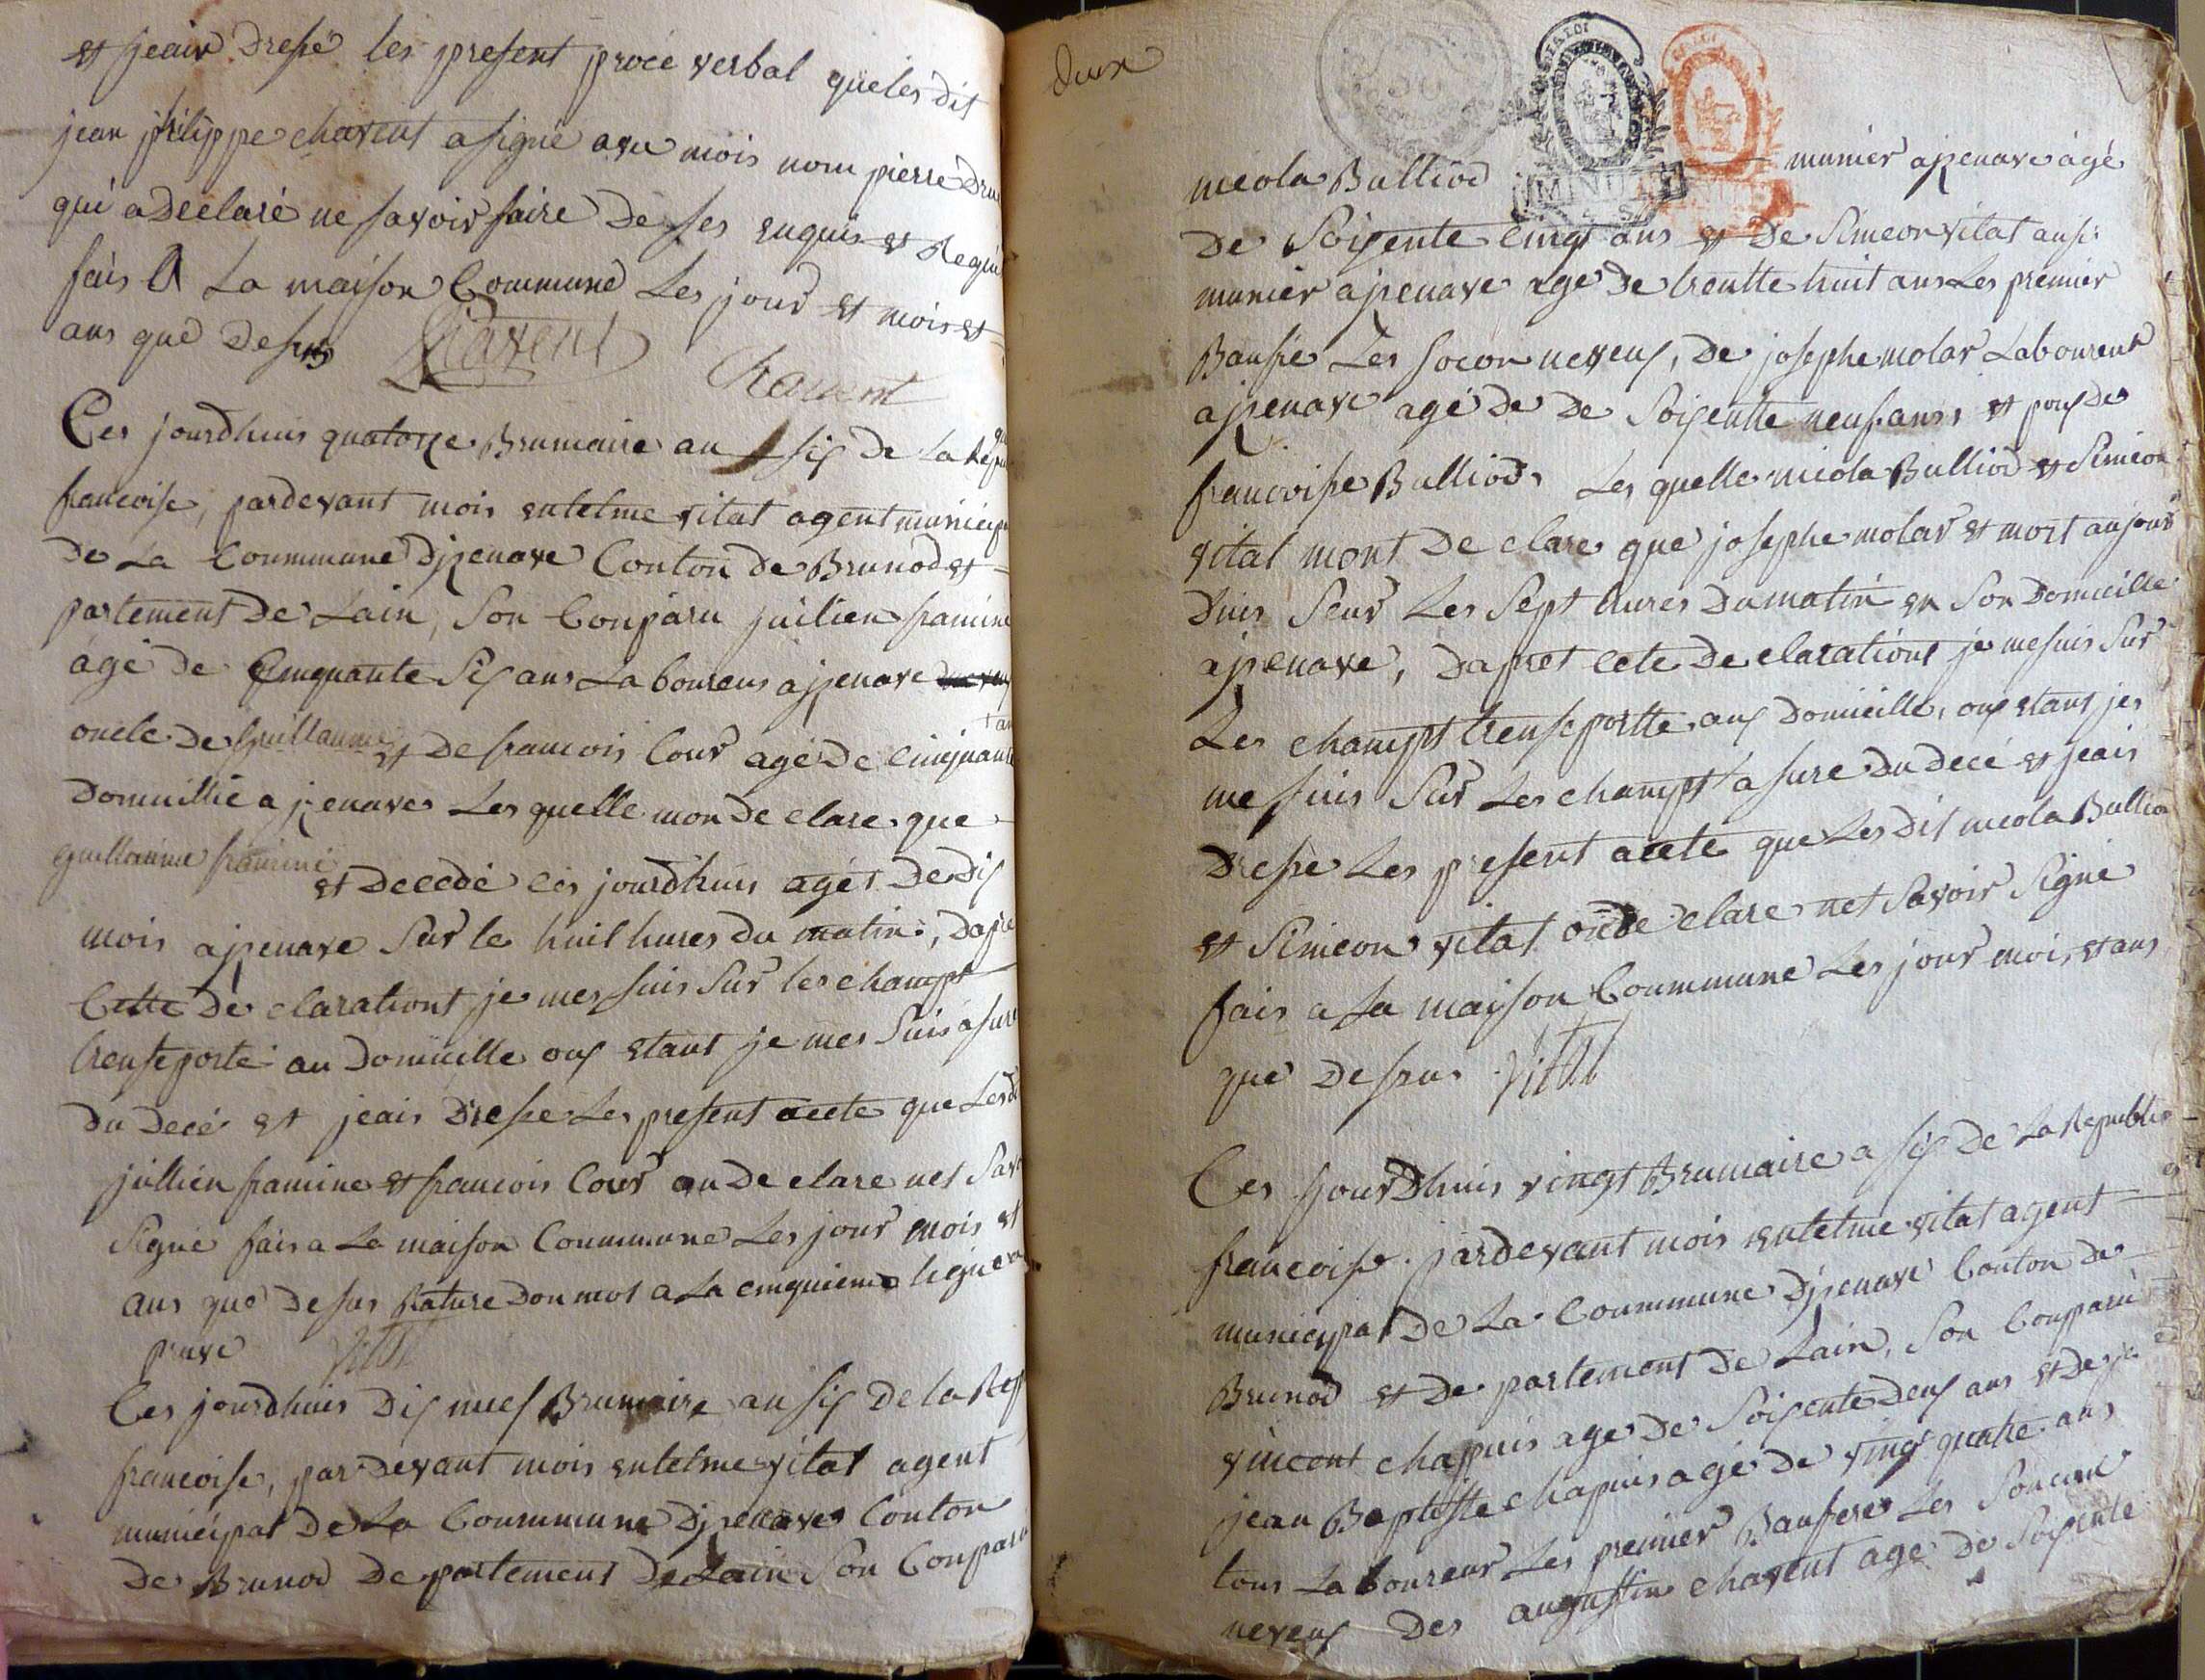 et jeair Drese les present procé verbal queles dit
jean philippe chavent a signé avu mois nom pierre Dru
qui a Declaré ne savoir faire De ses enquis et Requi
fais A La maison Commune Les jour et mois et
ans que Desus Chavent Chavent
Ces jourdhuis quatorze Brumaire an six De La Repu
francoise, pardevant mois entelme vital agent municip
De La Coummune Djzenave Conton De Brunod et
partement De Lain, Son Conparu juilien framine
agé De Cinquante Six ans Laboureus a jzenave
oncle De Guillaume et De francois Cour agé De Cinquante
Domicillié a jzenave Les quelle mon De clare que
guillaume framine et Decedé ces jourdhuis agés De Dix
mois a jzenave Sur le huit hures Du matin, Dapre
Cette De clarationt je mes suis Sur les champt
trenseporté au Domicille oux etant je mes Suis asure
Du Decé et jeais Drese Les present acete que Les d
jullien framine et francois Cour on De clare net Savo
Signé fais a La maison Coummune Les jour mois et
ans que Desus Rature Don mot a La cinquieme ligne a
pruve vital
Ces jourdhuis Dix nuef Brumaire an six De la Rep
francoise, par Devant mois entelme vital agent
municipal De La Coummune Djzenaves Conton
De Brunod De partement De Lain Son Conparu
Deux
nicola Bulliod munier a jzenave agé
De Soixente Cinqt ans et De Simeon vital ausi
munier a jzenave age De trentte huit ans Les premier
Bausie Les Socon neveux, De josephe molar Laboureur
a jzenave agé De De Soixentte neuf ans, et poux Des
francoise Bulliod, Les quelle nicola Bulliod et Simeon
vital mont De clare que josephe molar et mort aujour
Duis Seur Les Sept hures Du matin en Son Domicille
a jzenave, Dapret Cete De clarationt je me suis Sur
Les champt trenseportte aux Domicille, oux etant jes
me suis Sur Les champt asure Du decé et jeais
Drese Les present acete que Les Dit nicola Bulliod
et Simeon vital on De clare net Savoir Signé
fais a La maison Coummune Les jour moi, et ans
que Desus vital
Ces jourDhuis vingt Brumaire a six De La Republi
francoise pardevant mois entelme vital agent
municypal De La Coummune Djzenave Conton De
Brunod et De partement De Lain, Son Conpparu
vincent chappuis age De Soixente Deux ans et De
jean Baptiste chapuis agé De vingt quatre ans
tous Laboureur Les premier Baufere Les Soncone
neveux Des augustin chavent age De Soixente